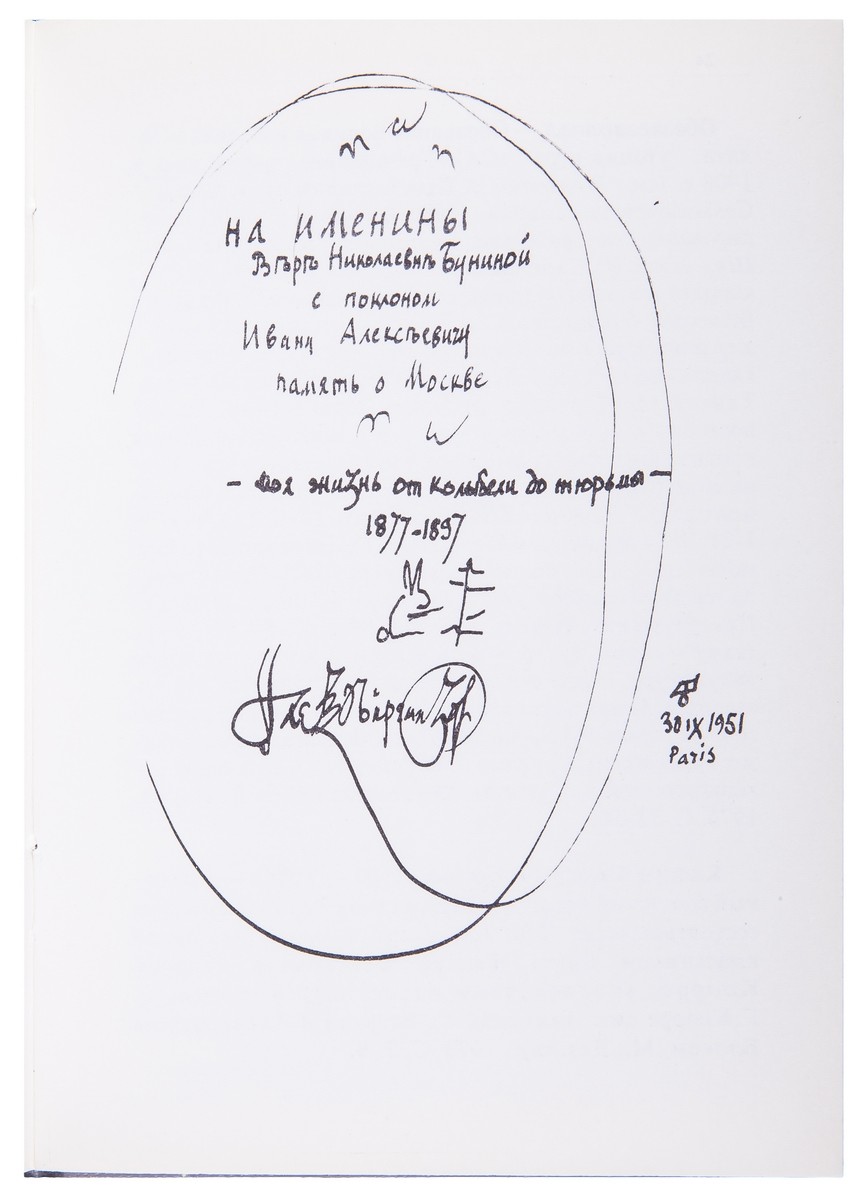 на именины
Вѣрѣ Николаевнѣ Буниной
с поклоном
Ивану Алексѣевичу
память о Москве
- моя жизнь от колыбели до тюрьмы -
1877-1897
Алексѣй Ремизов
30 IX 1951
Paris